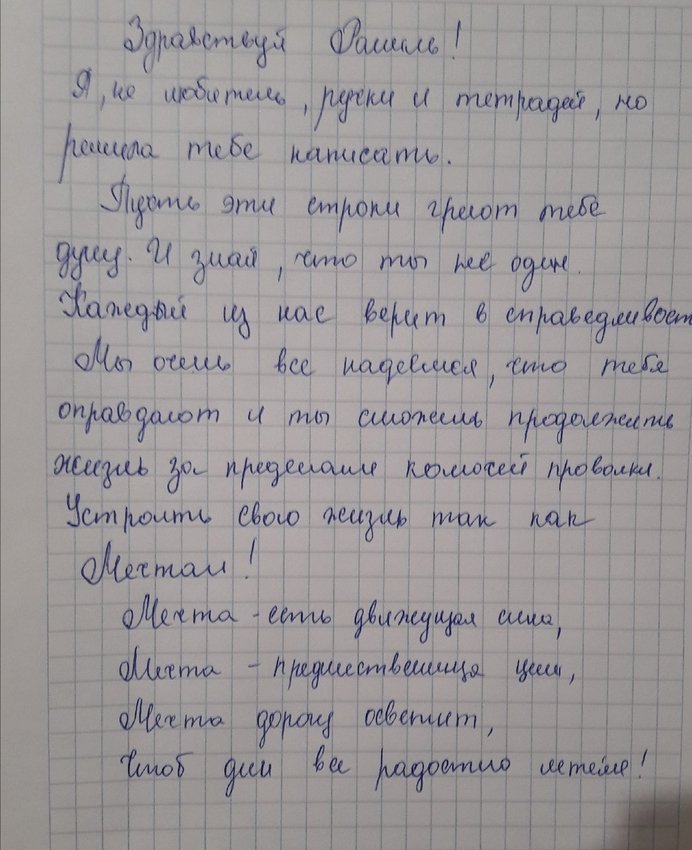 Здравствуй Рамиль!
Я, не любитель, ручки и тетрадей, но
решила тебе написать.
Пусть эти строки греют тебе
душу. И знай, что ты не один.
Каждый из нас верит в справедливост
Мы очень все надеемся, что тебя
оправдают и ты сможешь продолжить
жизнь за пределами колючей проволки.
Устроить свою жизнь так как
Мечтал!
Мечта - есть движущая сила,
Мечта - предшественница цели,
Мечта дорогу осветит,
Чтоб дни все радостно летели!